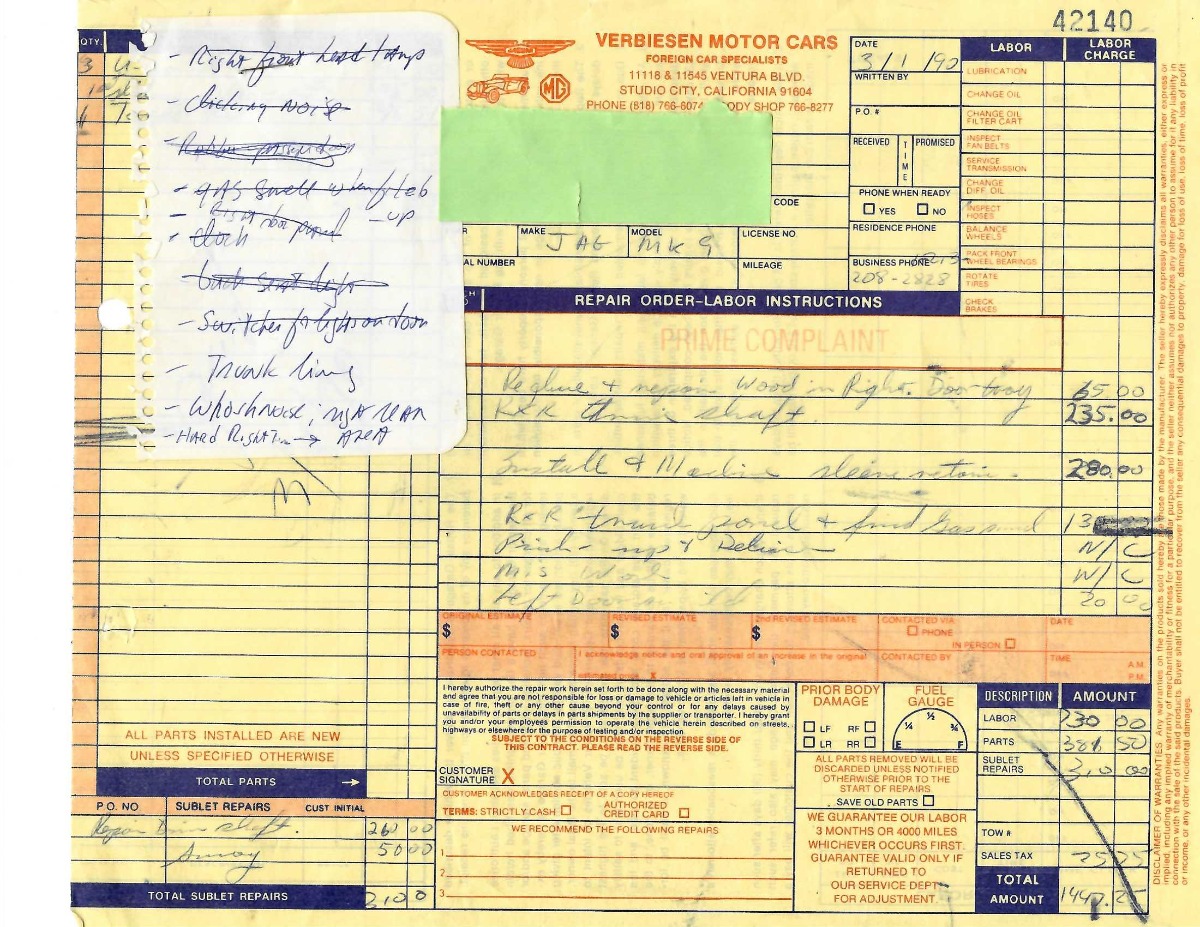 42140
QTY.
3
- Right front head lamp
- clicking noise
- gas smell when fleb
- up
- clock
back seat light
- Switches for lights on doors
- Trunk lining
- right rear
- Hard Right → Area
VERBIESEN MOTOR CARS
FOREIGN CAR SPECIALISTS
11118 & 11545 VENTURA BLVD.
STUDIO CITY, CALIFORNIA 91604
PHONE (818) 766-6074 BODY SHOP 766-8277
MG
CODE
MAKE JAG
MODEL MK 9
LICENSE NO
AL NUMBER
MILEAGE
DATE
3/1/90
WRITTEN BY
P.O. #
RECEIVED
TIME
PROMISED
PHONE WHEN READY
YES NO
RESIDENCE PHONE
BUSINESS PHONE 213-
208-2828
LABOR
LABOR CHARGE
LUBRICATION
CHANGE OIL
CHANGE OIL FILTER CART
INSPECT FAN BELTS
SERVICE TRANSMISSION
CHANGE DIFF. OIL
INSPECT HOSES
BALANCE WHEELS
PACK FRONT WHEEL BEARINGS
ROTATE TIRES
CHECK BRAKES
REPAIR ORDER-LABOR INSTRUCTIONS
PRIME COMPLAINT
Reglue + repair Wood in Right Door 65.00
R+R shaft 235.00
Install & Machine sleeve 280.00
R+R panel + find Gas 13
N/C
Wood N/C
Left Door 20 00
ORIGINAL ESTIMATE
$
REVISED ESTIMATE
$
2nd REVISED ESTIMATE
$
CONTACTED VIA:
PHONE
IN PERSON
DATE
PERSON CONTACTED
I acknowledge notice and oral approval of an increase in the original
estimated price. X
CONTACTED BY
TIME
A.M.
P.M.
I hereby authorize the repair work herein set forth to be done along with the necessary material
and agree that you are not responsible for loss or damage to vehicle or articles left in vehicle in
case of fire, theft or any other cause beyond your control or for any delays caused by
unavailability of parts or delays in parts shipments by the supplier or transporter. I hereby grant
you and/or your employees permission to operate the vehicle herein described on streets,
highways or elsewhere for the purpose of testing and/or inspection.
SUBJECT TO THE CONDITIONS ON THE REVERSE SIDE OF
THIS CONTRACT. PLEASE READ THE REVERSE SIDE.
CUSTOMER
SIGNATURE X
CUSTOMER ACKNOWLEDGES RECEIPT OF A COPY HEREOF
TERMS: STRICTLY CASH
AUTHORIZED CREDIT CARD
WE RECOMMEND THE FOLLOWING REPAIRS
1
2
3
PRIOR BODY DAMAGE
LF RF
LR RR
FUEL GAUGE
E ¼ ½ ¾ F
ALL PARTS REMOVED WILL BE
DISCARDED UNLESS NOTIFIED
OTHERWISE PRIOR TO THE
START OF REPAIRS
SAVE OLD PARTS
WE GUARANTEE OUR LABOR
3 MONTHS OR 4000 MILES
WHICHEVER OCCURS FIRST.
GUARANTEE VALID ONLY IF
RETURNED TO
OUR SERVICE DEPT.
FOR ADJUSTMENT.
DESCRIPTION AMOUNT
LABOR 730 00
PARTS 381 50
SUBLET REPAIRS 310 00
TOW #
SALES TAX 25 75
TOTAL AMOUNT 1447.25
ALL PARTS INSTALLED ARE NEW
UNLESS SPECIFIED OTHERWISE
TOTAL PARTS →
P.O. NO SUBLET REPAIRS CUST INITIAL
Repair Driv shaft. 260 00
50 00
TOTAL SUBLET REPAIRS 310 0
DISCLAIMER OF WARRANTIES. Any warranties on the products sold hereby are those made by the manufacturer. The seller hereby expressly disclaims all warranties, either express or
implied, including any implied warranty of merchantability or fitness for a particular purpose, and the seller neither assumes nor authorizes any other person to assume for it any liability in
connection with the sale of the said products. Buyer shall not be entitled to recover from the seller any consequential damages, damages to property, damage for loss of use, loss of time, loss of profit
or income, or any other incidental damages.